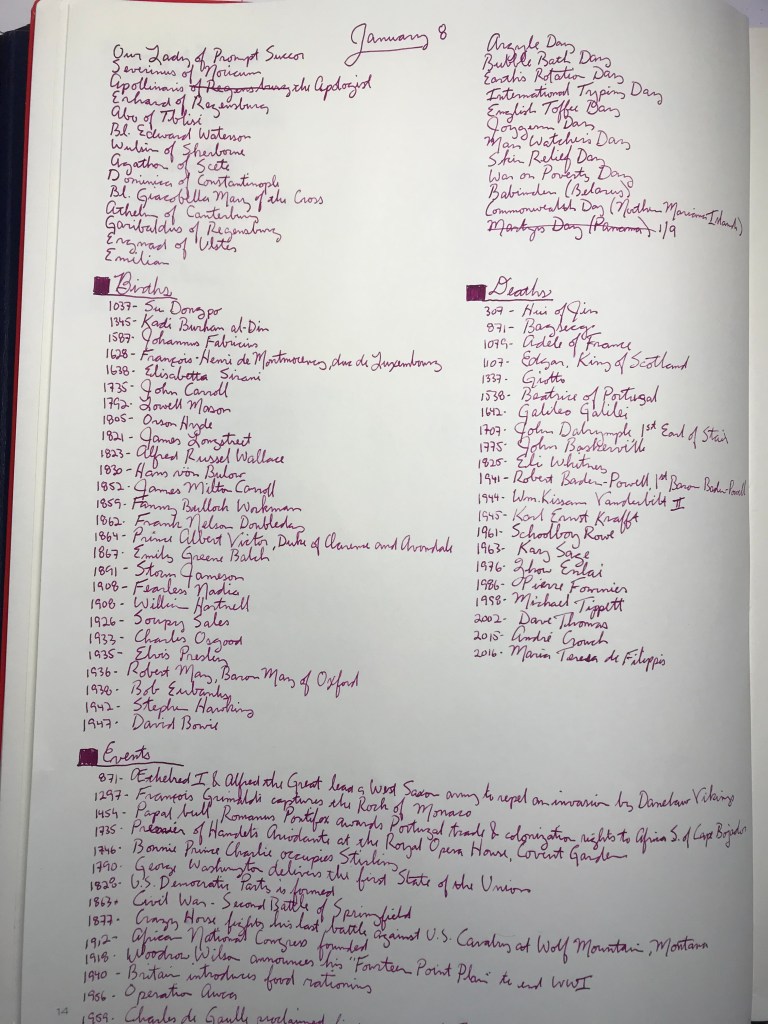 January 8
Our Lady of Prompt Succor
Severinus of Noricum
Apollinaris of Regensburg the Apologist
Erhard of Regensburg
Abo of Tblisi
Bl. Edward Waterson
Wulsin of Sherborne
Agathon of Scete
Dominica of Constantinople
Bl. Giacobella Mary of the Cross
Athelm of Canterbury
Garibaldus of Regensburg
Ergnad of Ulster
Emilian
Argyle Day
Bubble Bath Day
Earth's Rotation Day
International Typing Day
English Toffee Day
Joygerm Day
Man Watcher's Day
Skin Relief Day
War on Poverty Day
Babinden (Belarus)
Commonwealth Day (Northern Mariana Islands)
Martyrs Day (Panama) 1/9
Births
1037- Su Dongpo
1345- Kadi Burhan al-Din
1587- Johannus Fabricius
1628- François-Henri de Montmorency, duc de Luxembourg
1638- Elisabetta Sirani
1735- John Carroll
1792- Lowell Mason
1805- Orson Hyde
1821- James Longstreet
1823- Alfred Russel Wallace
1830- Hans von Bulow
1852- James Milton Carroll
1859- Fanny Bulloch Workman
1862- Frank Nelson Doubleday
1864- Prince Albert Victor, Duke of Clarence and Avondale
1867- Emily Greene Balch
1891- Storm Jameson
1908- Fearless Nadia
1908- William Hartnell
1926- Soupy Sales
1933- Charles Osgood
1935- Elvis Presley
1936- Robert May, Baron May of Oxford
1938- Bob Eubanks
1942- Stephen Hawking
1947- David Bowie
Deaths
307- Hui of Jin
871- Bagsecg
1079- Adèle of France
1107- Edgar, King of Scotland
1337- Giotto
1538- Beatrice of Portugal
1642- Galileo Galilei
1707- John Dalrymple 1st Earl of Stair
1775- John Baskerville
1825- Eli Whitney
1941- Robert Baden-Powell, 1st Baron Baden-Powell
1944- Wm. Kissam Vanderbilt II
1945- Karl Ernst Krafft
1961- Schoolboy Rowe
1963- Kay Sage
1976- Zhou Enlai
1986- Pierre Fournier
1998- Michael Tippett
2002- Dave Thomas
2015- André Crouch
2016- Maria Teresa de Filippis
Events
871- Æthelred I & Alfred the Great lead a West Saxon army to repel an invasion by Danelaw Vikings
1297- François Grimaldi captures the Rock of Monaco
1454- Papal bull Romanus Pontifex awards Portugal trade & colonization rights to Africa S. of Cape Bojador
1735- Premier of Handel's Ariodante at the Royal Opera House, Covent Garden
1746- Bonnie Prince Charlie occupies Stirling
1790- George Washington delivers the first State of the Union
1828- U.S. Democratic Party is formed
1863- Civil War - Second Battle of Springfield
1877- Crazy Horse fights his last battle against U.S. Cavalry at Wolf Mountain, Montana
1912- African National Congress founded
1918- Woodrow Wilson announces his "Fourteen Point Plan" to end WWI
1940- Britain introduces food rationing
1956- Operation Auca
1959- Charles de Gaulle proclaimed
14